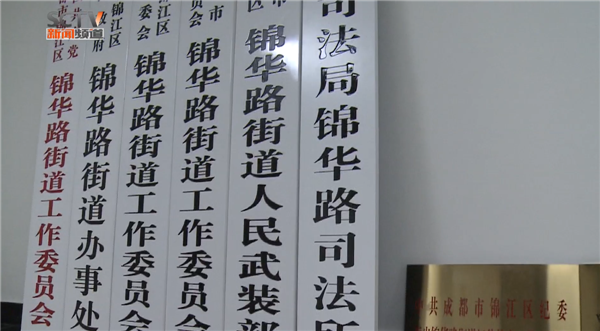 SCTV
新闻频道
司法局锦华路司法所
市
区
锦华路街道人民武装部
市
区
委员会
锦华路街道工作委员会
江区
委员会
锦华路街道工作委员会
锦江区
府
锦华路街道办事处
党
市锦江区
锦华路街道工作委员会
中共成都市锦江区纪委